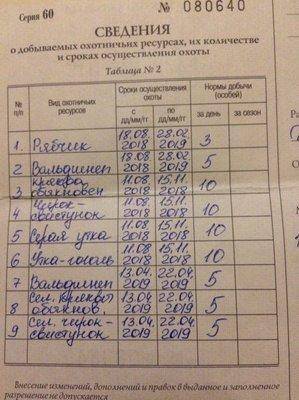 Серия 60 № 080640
СВЕДЕНИЯ
о добываемых охотничьих ресурсах, их количестве
и сроках осуществления охоты
Таблица № 2
№ п/п Вид охотничьих ресурсов Сроки осуществления охоты с дд/мм/гг по дд/мм/гг Нормы добычи (особей) за день за сезон
1. Рябчик 18.08. 2018 28.02 2019 3
2 Вальдшнеп 18.08. 2018 28.02 2019 5
3 кряква обыкновен 11.08 2018 15.11. 2018 10
4 Чирок-свистунок 11.08 2018 15.11. 2018 10
5 Серая утка 11.08 2018 15.11. 2018 10
6 Утка-гоголь 11.08 2018 15.11. 2018 10
7 Вальдшнеп 13.04. 2019 22.04. 2019 5
8 Сел. кряквы обыкнов. 13.04 2019 22.04. 2019 5
9 Сел. чирок-свистунок 13.04. 2019 22.04. 2019 5
Внесение изменений, дополнений и правок в выданное и заполненное
разрешение не допускается